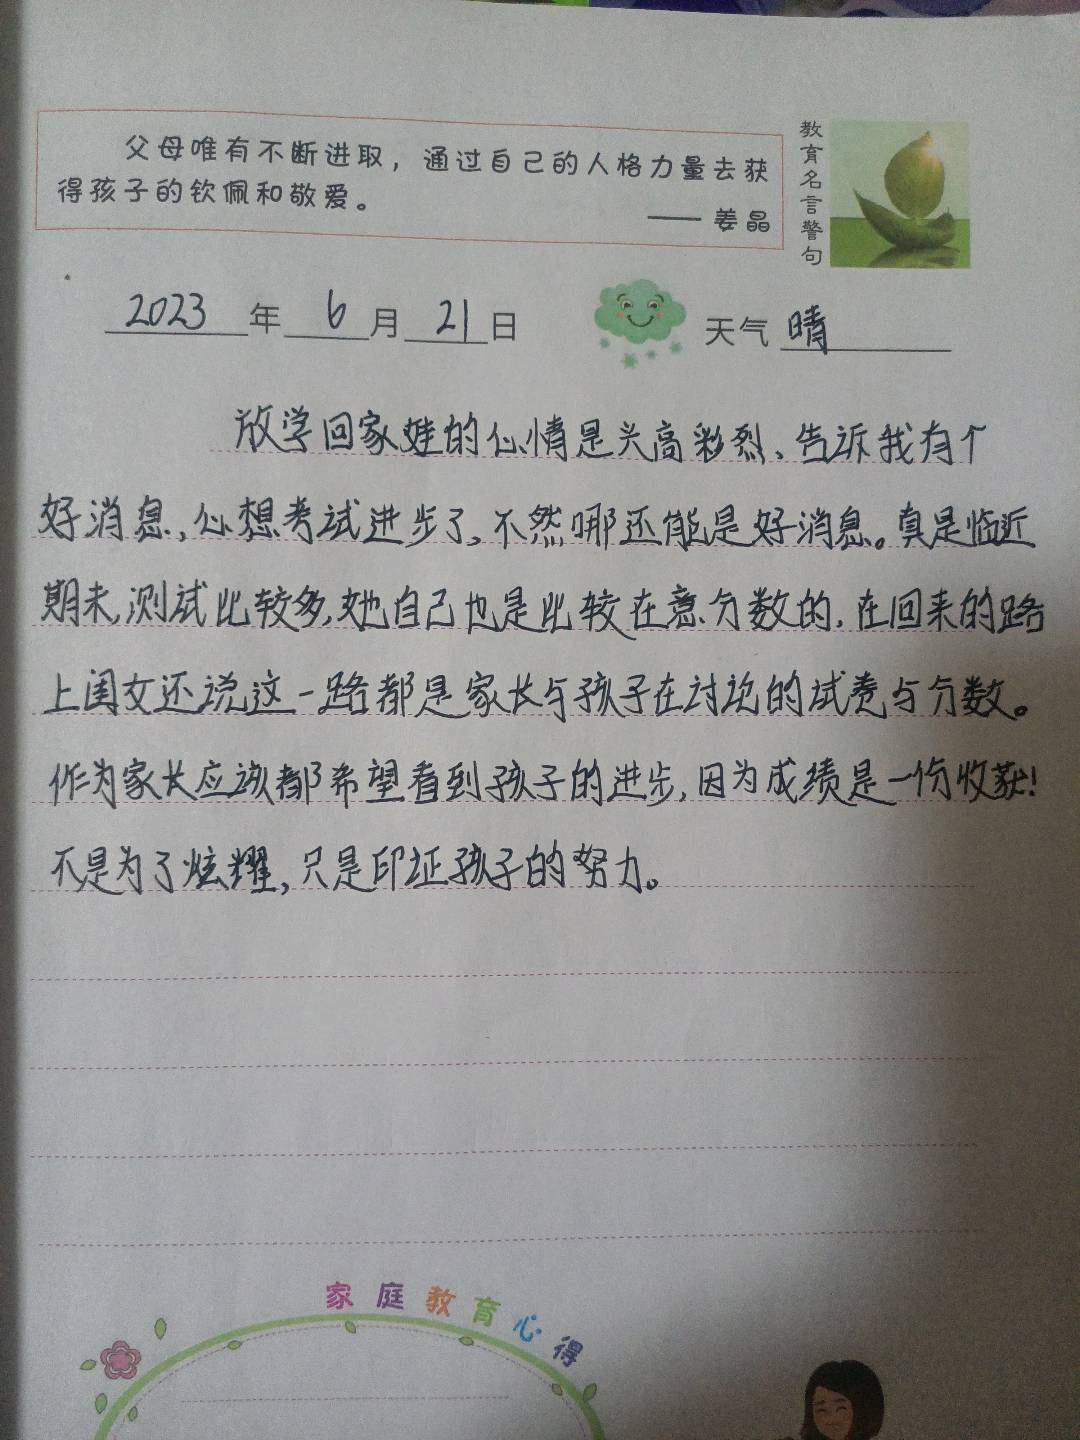 父母唯有不断进取，通过自己的人格力量去获
得孩子的钦佩和敬爱。
—— 姜晶
教育名言警句
2023年6月21日
天气 晴
放学回家娃的心情是兴高彩烈、告诉我有个
好消息,心想考试进步了,不然哪还能是好消息。真是临近
期末,测试比较多,她自己也是比较在意分数的,在回来的路
上闺女还说这一路都是家长与孩子在讨论的试卷与分数。
作为家长应该都希望看到孩子的进步,因为成绩是一份收获!
不是为了炫耀,只是印证孩子的努力。
家庭教育心得